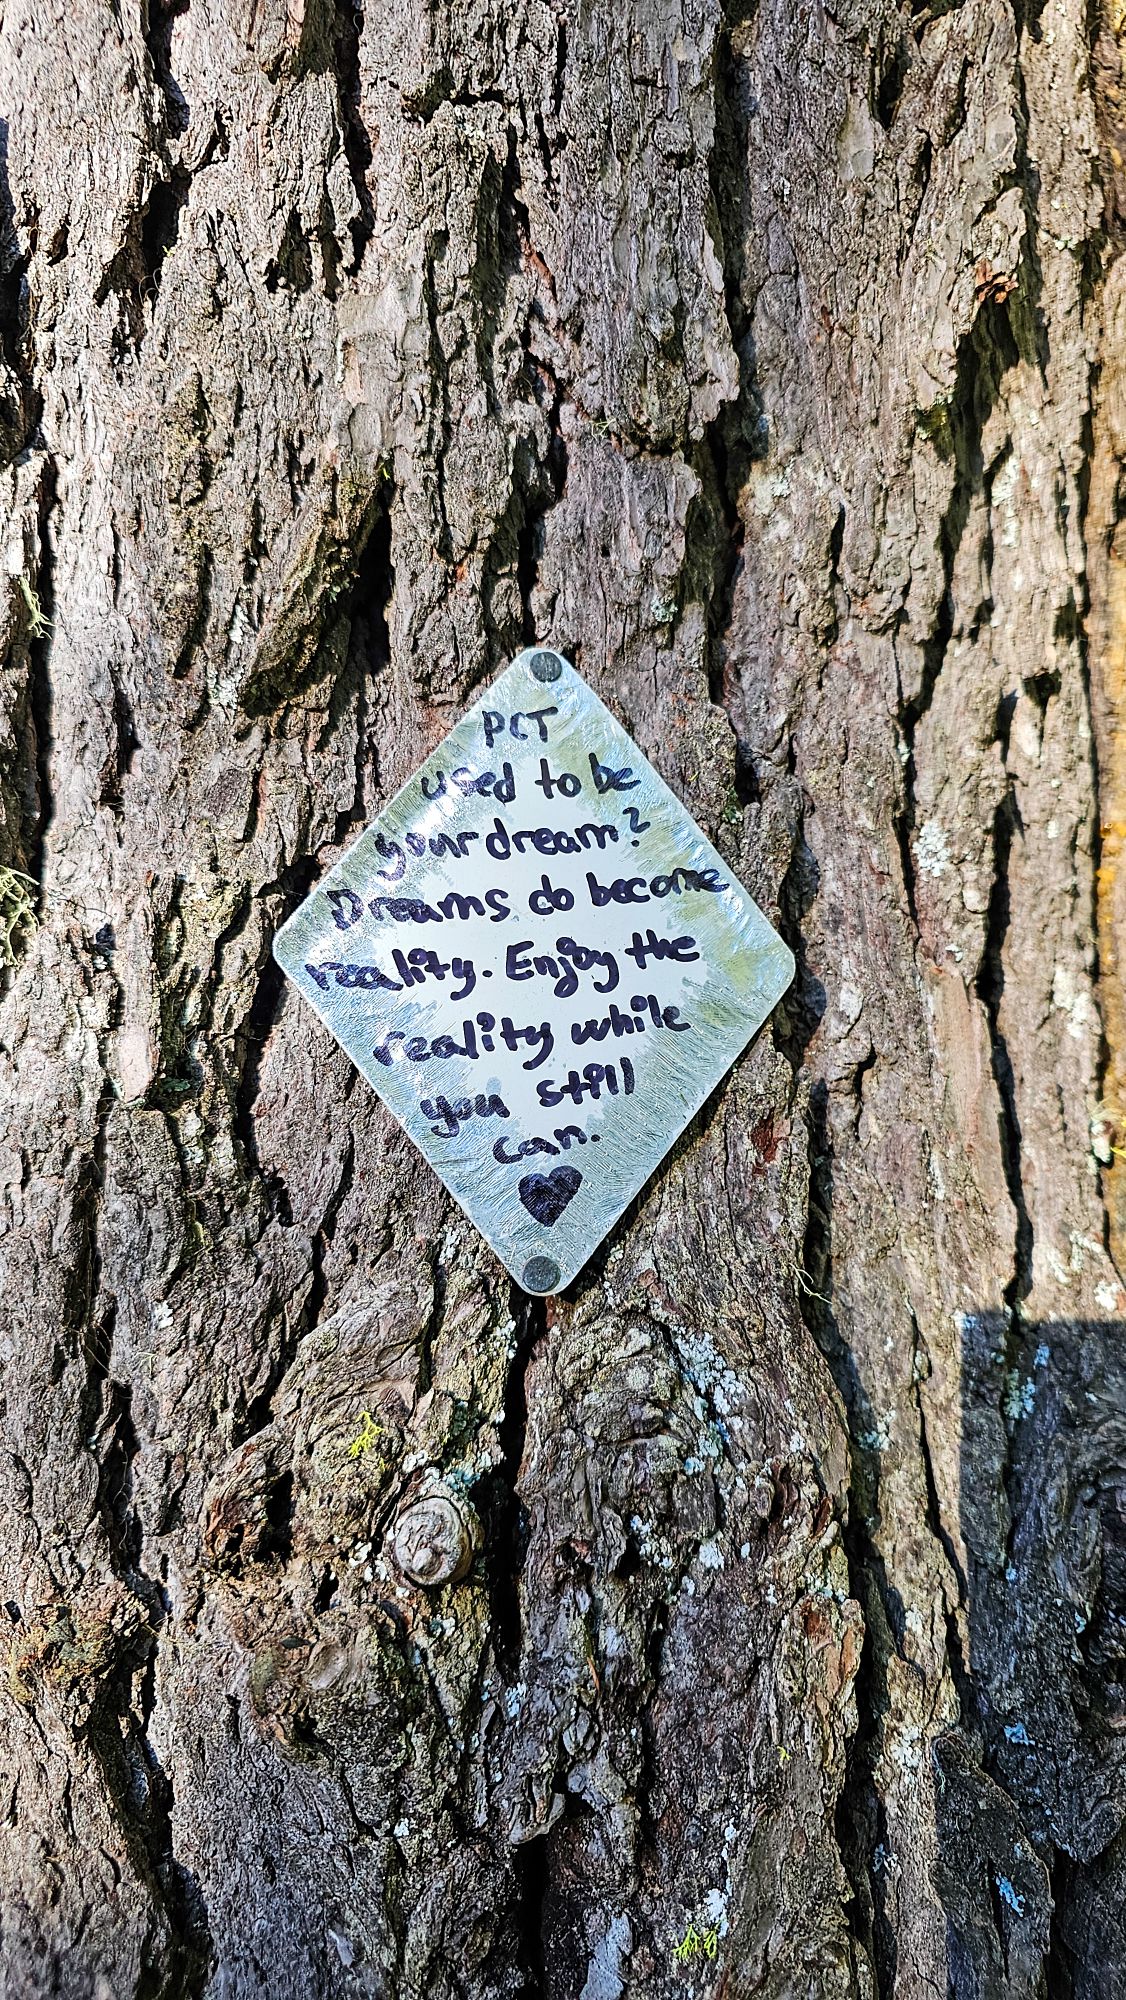 PCT
used to be
your dream?
Dreams do become
reality. Enjoy the
reality while
you still
can.